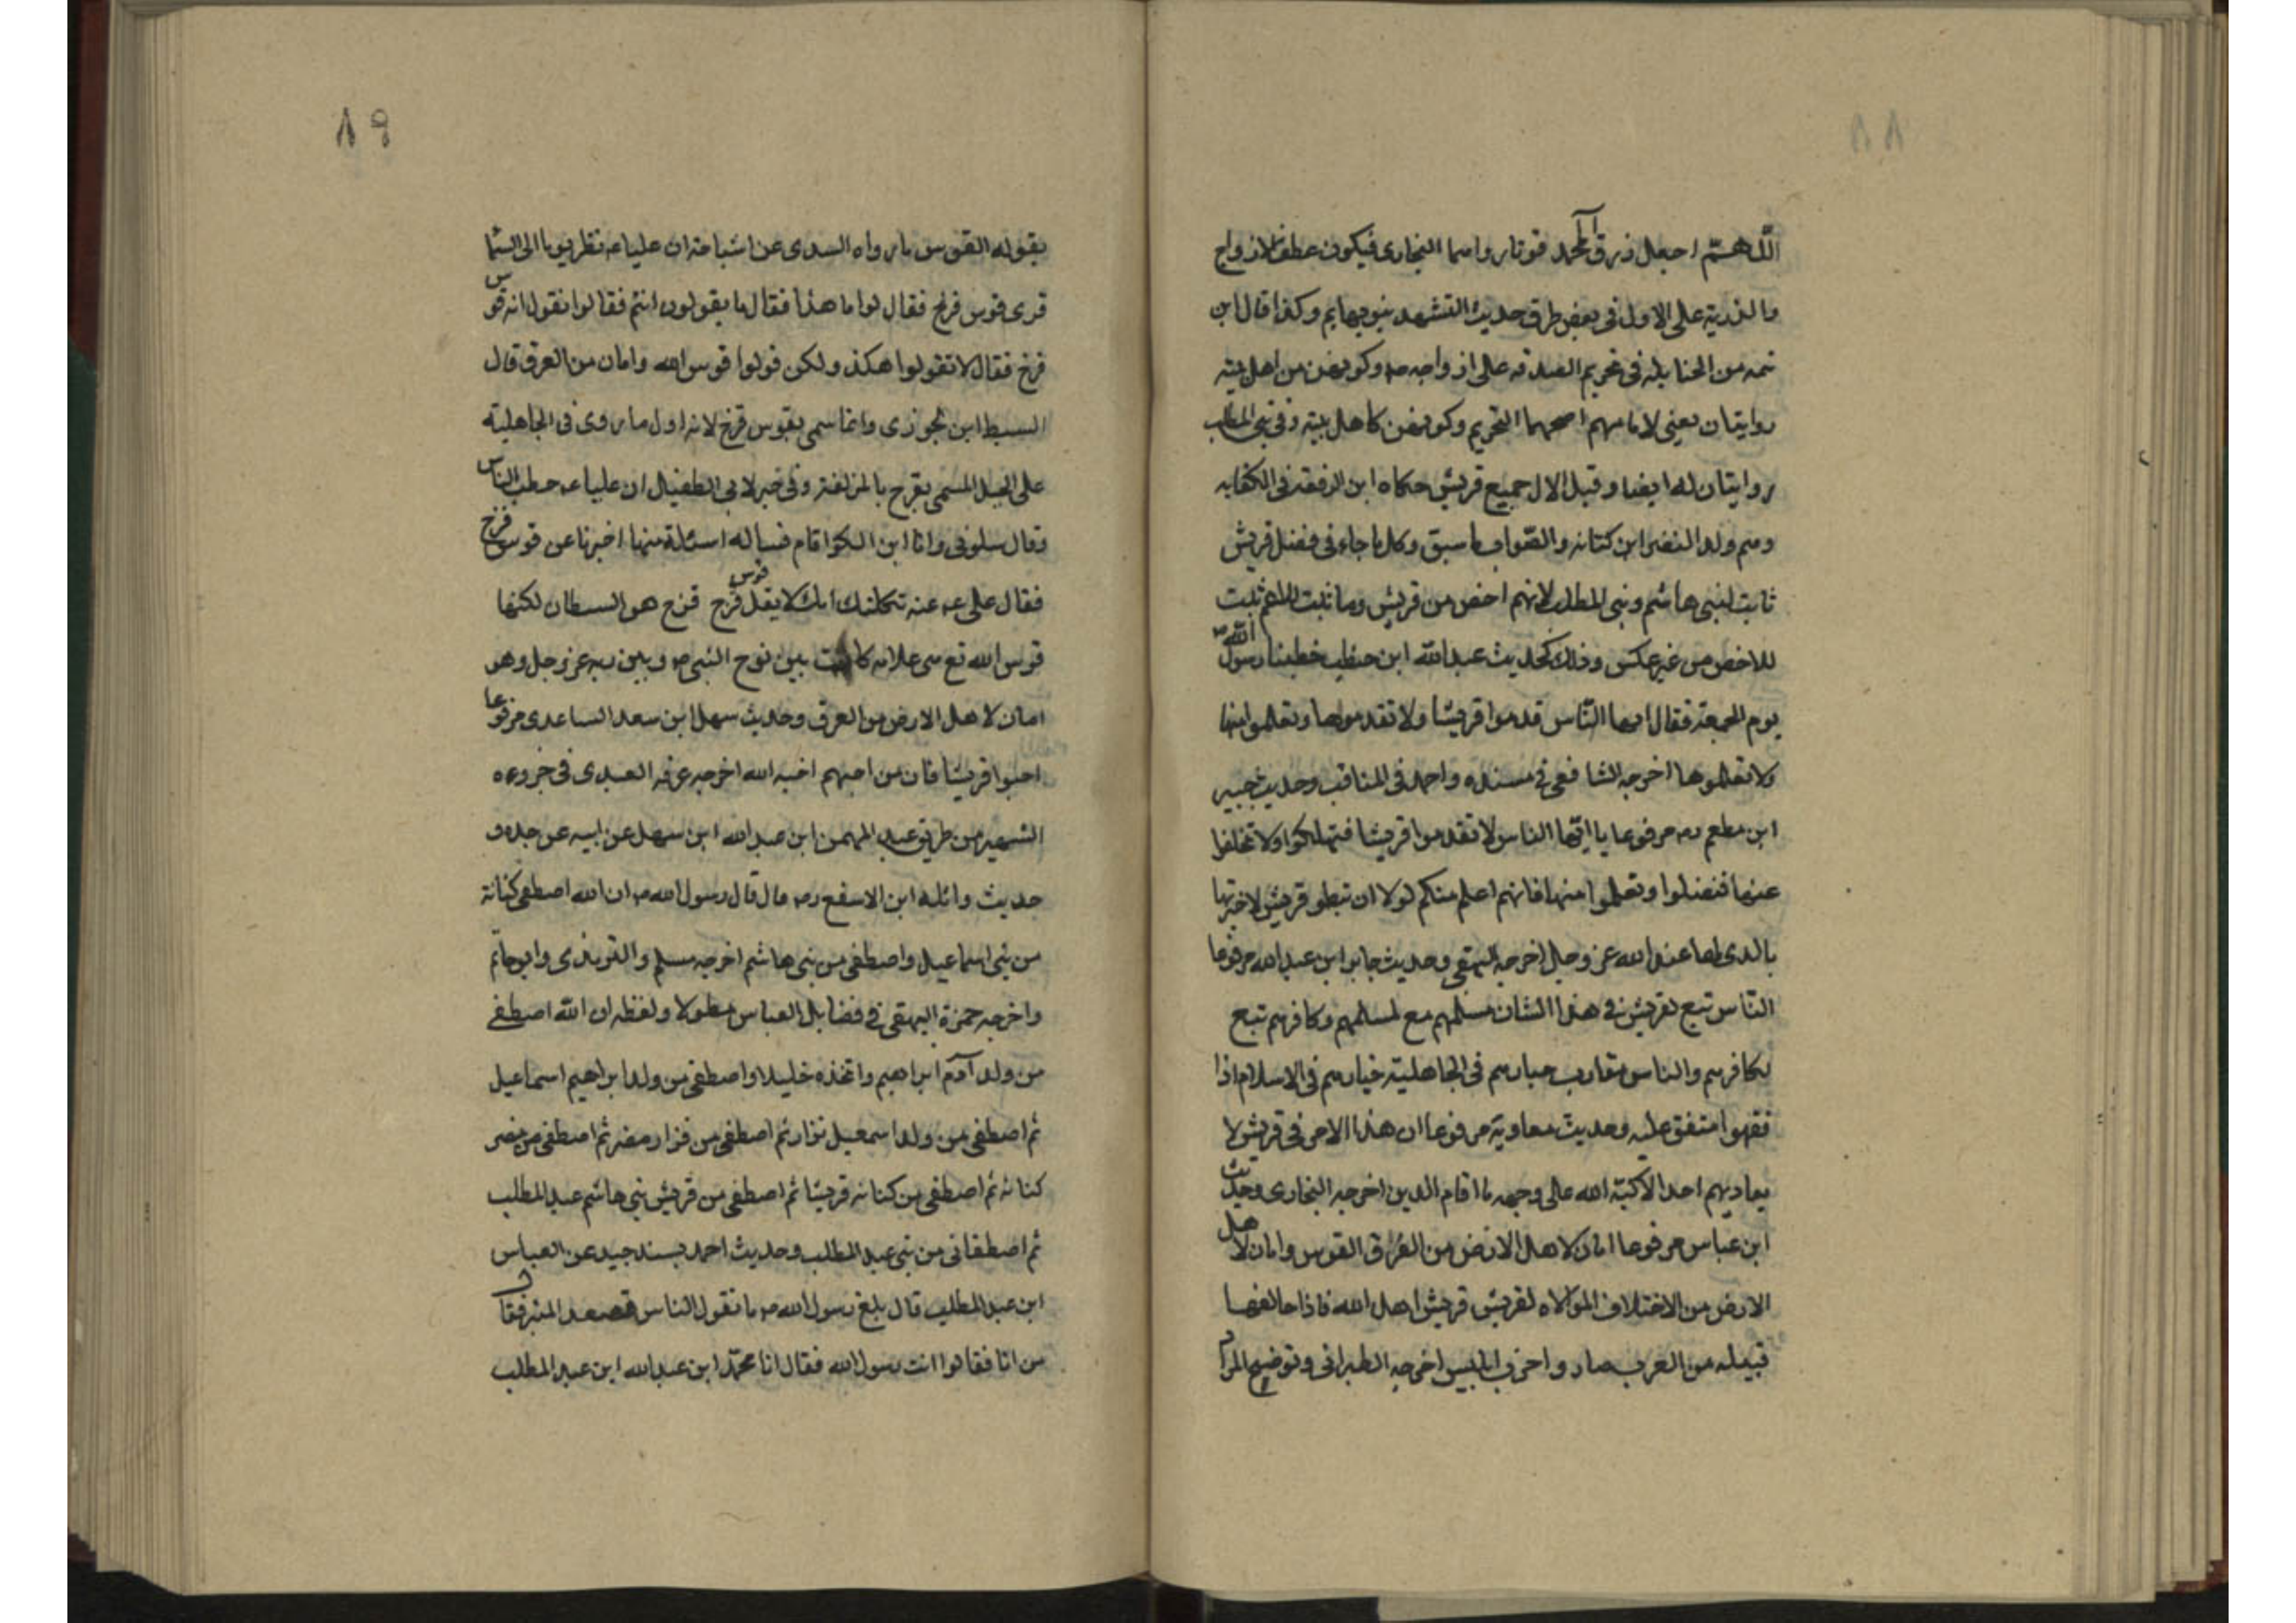 ٨٨
اللهم اجعل رزق آل محمد قوتا رواهما البخارى فيكون عطف الازواج
والذرية على الاول فى بعض طرق حديث التشهد بنوبهايم وكذا قال ابن
تيميه من الحنابله فى تحريم الصدقه على ازواجه صه وكونهن من اهل بيته
روايتان يعنى لامامهم اصحهما التحريم وكونهن كاهل بيته وفى بنى المطلب
روايتان له ايضا وقيل الال جميع قريش حكاه ابن الرفعه فى الكفايه
وهم ولد النضر ابن كنانه والصواب ما سبق وكل ما جاء فى فضل قريش
ثابت لبنى هاشم وبنى المطلب لانهم اخص من قريش وما ثبت للاعم ثبت
للاخص من غير عكس وذلك كحديث عبد الله ابن حنطب خطبنا رسول الله صه
يوم الجمعة فقال ايها الناس قدموا قريشا ولا تقدموها وتعلموا منها
ولا تعلموها اخرجه الشافعى فى مسنده واحمد فى المناقب وحديث جبير
ابن مطعم رضه مرفوعا يا ايها الناس لا تقدموا قريشا فتهلكوا ولا تخلفوا
عنها فتضلوا وتعلموا منها فانهم اعلم منكم لولا ان تبطر قريش لاخبرتها
بالذى لها عند الله عز وجل اخرجه البيهقى وحديث جابر ابن عبد الله مرفوعا
الناس تبع لقريش فى هذا الشان مسلمهم مع لمسلمهم وكافرهم تبع
لكافرهم والناس مقارب خيارهم فى الجاهلية خيارهم فى الاسلام اذا
فقهوا متفق عليه وحديث معاوية مرفوعا ان هذا الامر فى قريش لا
يعاديهم احد الا كبه الله على وجهه ما اقام الدين اخرجه البخارى وحديث
ابن عباس مرفوعا امان لاهل الارض من الغرق القوس وامان لاهل
الارض من الاختلاف الموالاه لقريش قريش اهل الله فاذا خالفها
قبيله من العرب صار واحزب ابليس اخرجه الطبرانى وتوضيح المراد
٨٩
بقوله القوس ما رواه السدى عن اشياخه ان عليا عه نظر يوما الى السما
فرى قوس قزح فقال لوا ما هذا فقال ما يقولون انتم فقالوا نقول انه قوس
قزح فقال لا تقولوا هكذ ولكن قولوا قوس الله وامان من الغرق قال
السبط ابن الجوزى وانما سمى بقوس قزح لانه اول ما روى فى الجاهلية
على الجبل المسمى بقزح بالمزلفة وفى خبر لابى الطفيل ان عليا عه خطب الناس
وقال سلونى وانا ابن الكوا قام فساله اسئلة منها اخبرنا عن قوس قزح
فقال على عه عنه ثكلتك امك لا يقل قوس قزح قزح هو السيطان لكنها
قوس الله تع هى علامه كانت بين نوح النبى صه وبين ربه عز وجل وهو
امان لاهل الارض من الغرق وحديث سهل ابن سعد الساعدى مرفوعا
احبوا قريشا فان من احبهم احبه الله اخرجه عرفه العبدى فى جزوءه
الشهير من طريق عبد المهمن ابن عبد الله ابن سهل عن ابيه عن جده و
حديث واثله ابن الاسقع رضه مال قال رسول الله صه ان الله اصطفى كنانة
من بنى اسماعيل واصطفى من بنى هاشم اخرجه مسلم والترمذى وابو حاتم
واخرجه حمزة البيهقى فى فضايل العباس مطولا ولفظه ان الله اصطفى
من ولد آدم ابراهيم واتخذه خليلا واصطفى من ولد ابراهيم اسماعيل
ثم اصطفى من ولد اسمعيل نزار ثم اصطفى من نزار مضر ثم اصطفى من مضر
كنانه ثم اصطفى من كنانه قريشا ثم اصطفى من قريش بنى هاشم عبد المطلب
ثم اصطفانى من بنى عبد المطلب وحديث احمد بسند جيد عن العباس
ابن عبد المطلب قال بلغ رسول الله صه ما تقول الناس فصعد المنبر فقال
من انا فقالوا انت رسول الله فقال انا محمد ابن عبد الله ابن عبد المطلب